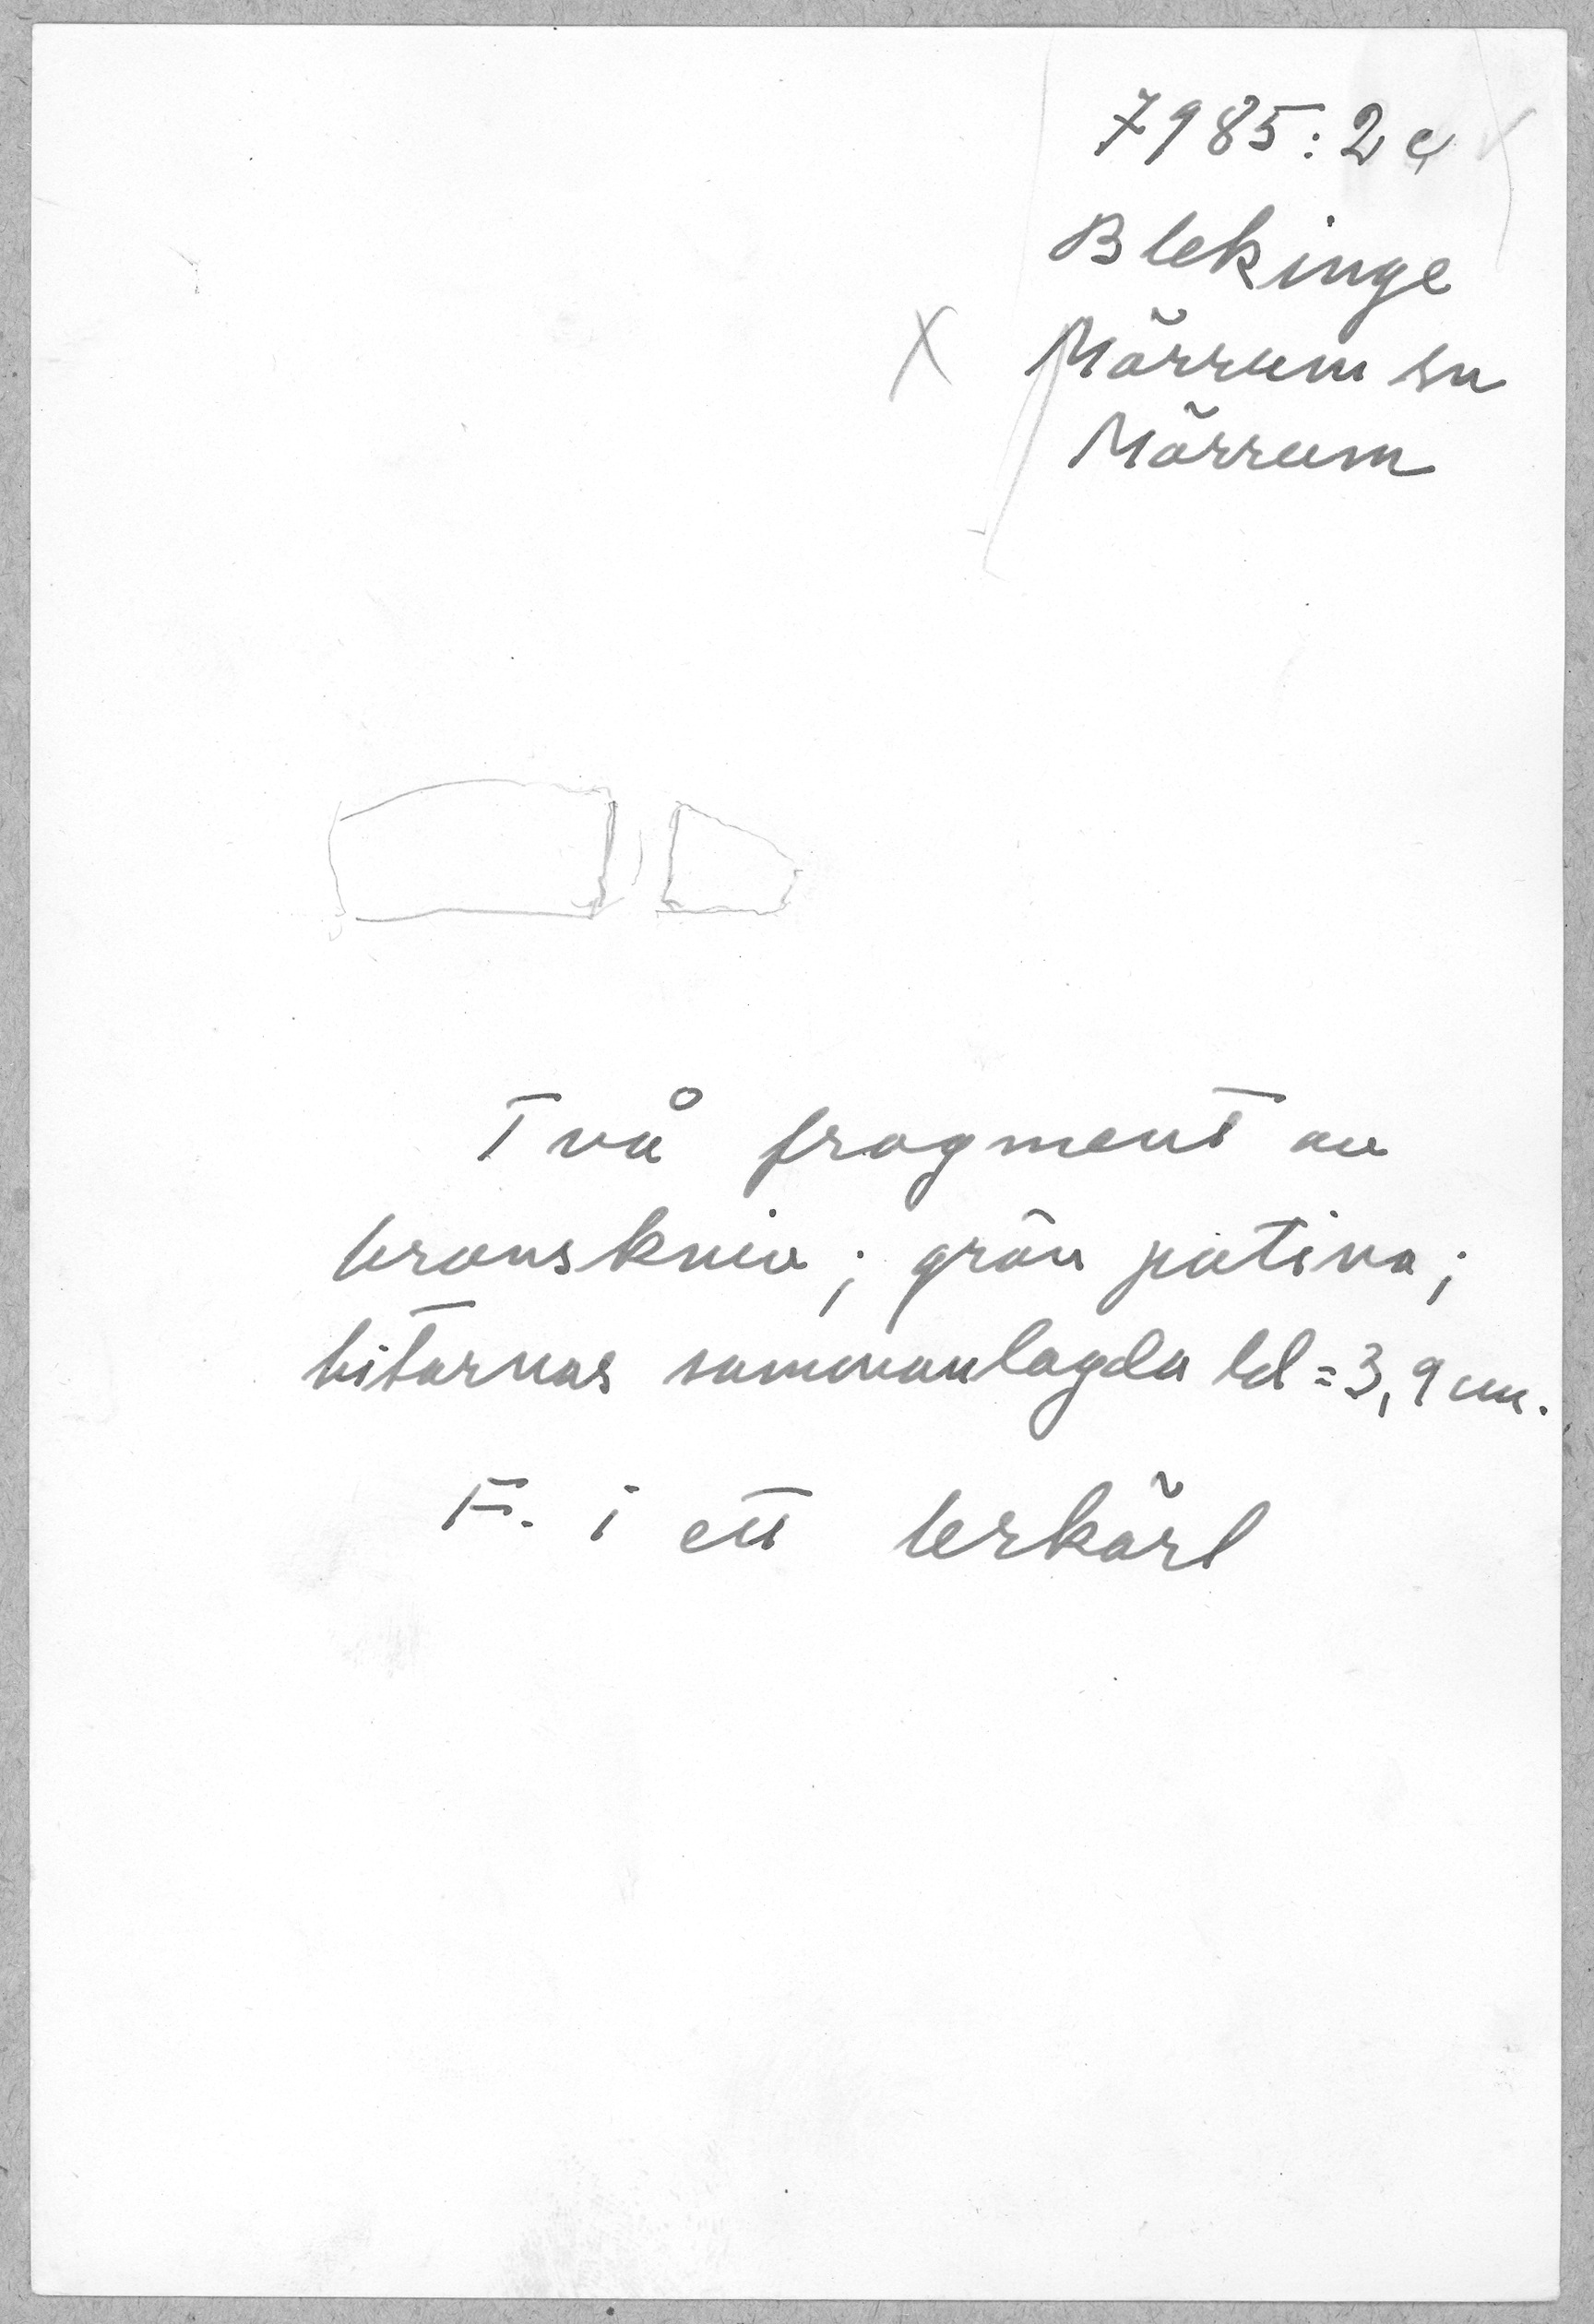 7985:2c
Blekinge
X Mörrum sn
Mörrum
Två fragment av
bronskniv; grön patina;
bitarnas sammanlagda ld = 3,9 cm.
F. i ett lerkärl